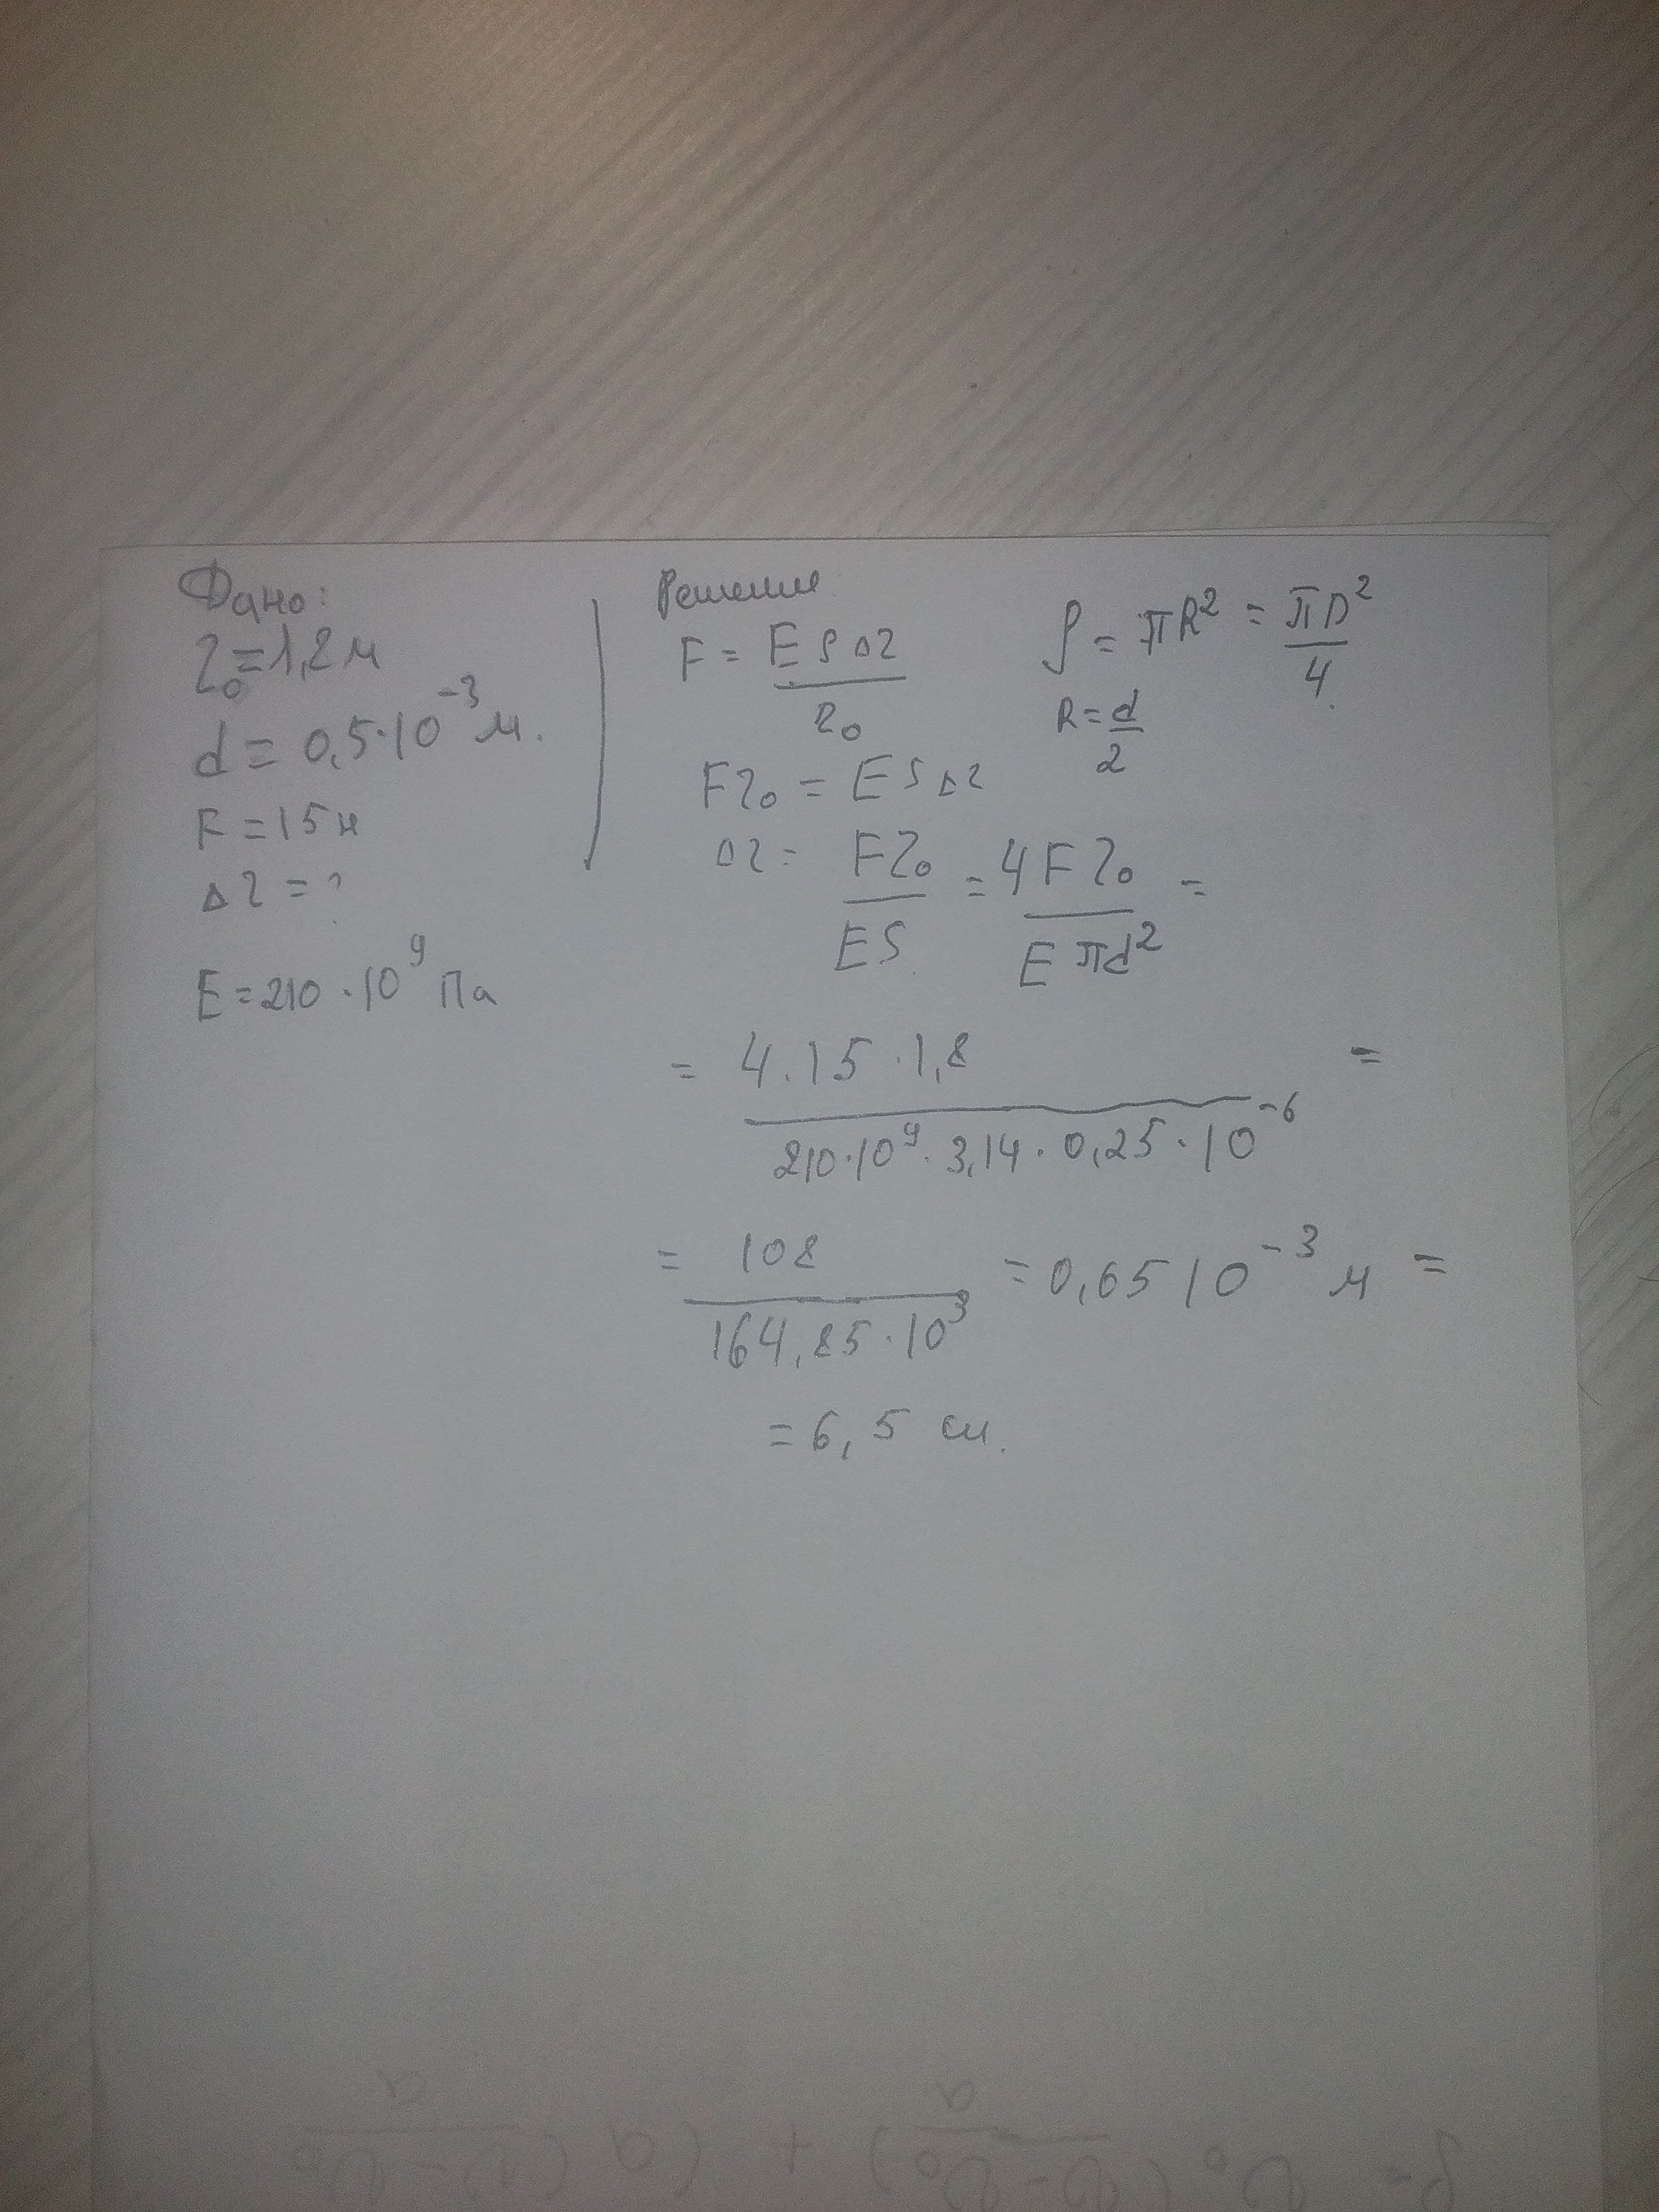 Дано:
l₀ = 1,8 м
d = 0,5·10⁻³ м.
F = 15 н
Δl = ?
E = 210·10⁹ Па
Решение
F = ESΔl / l₀
S = πR² = πD² / 4
R = d / 2
Fl₀ = ESΔl
Δl = Fl₀ / ES = 4Fl₀ / Eπd² =
= 4·15·1,8 / 210·10⁹·3,14·0,25·10⁻⁶ =
= 108 / 164,85·10³ = 0,65 10⁻³ м =
= 6,5 см.